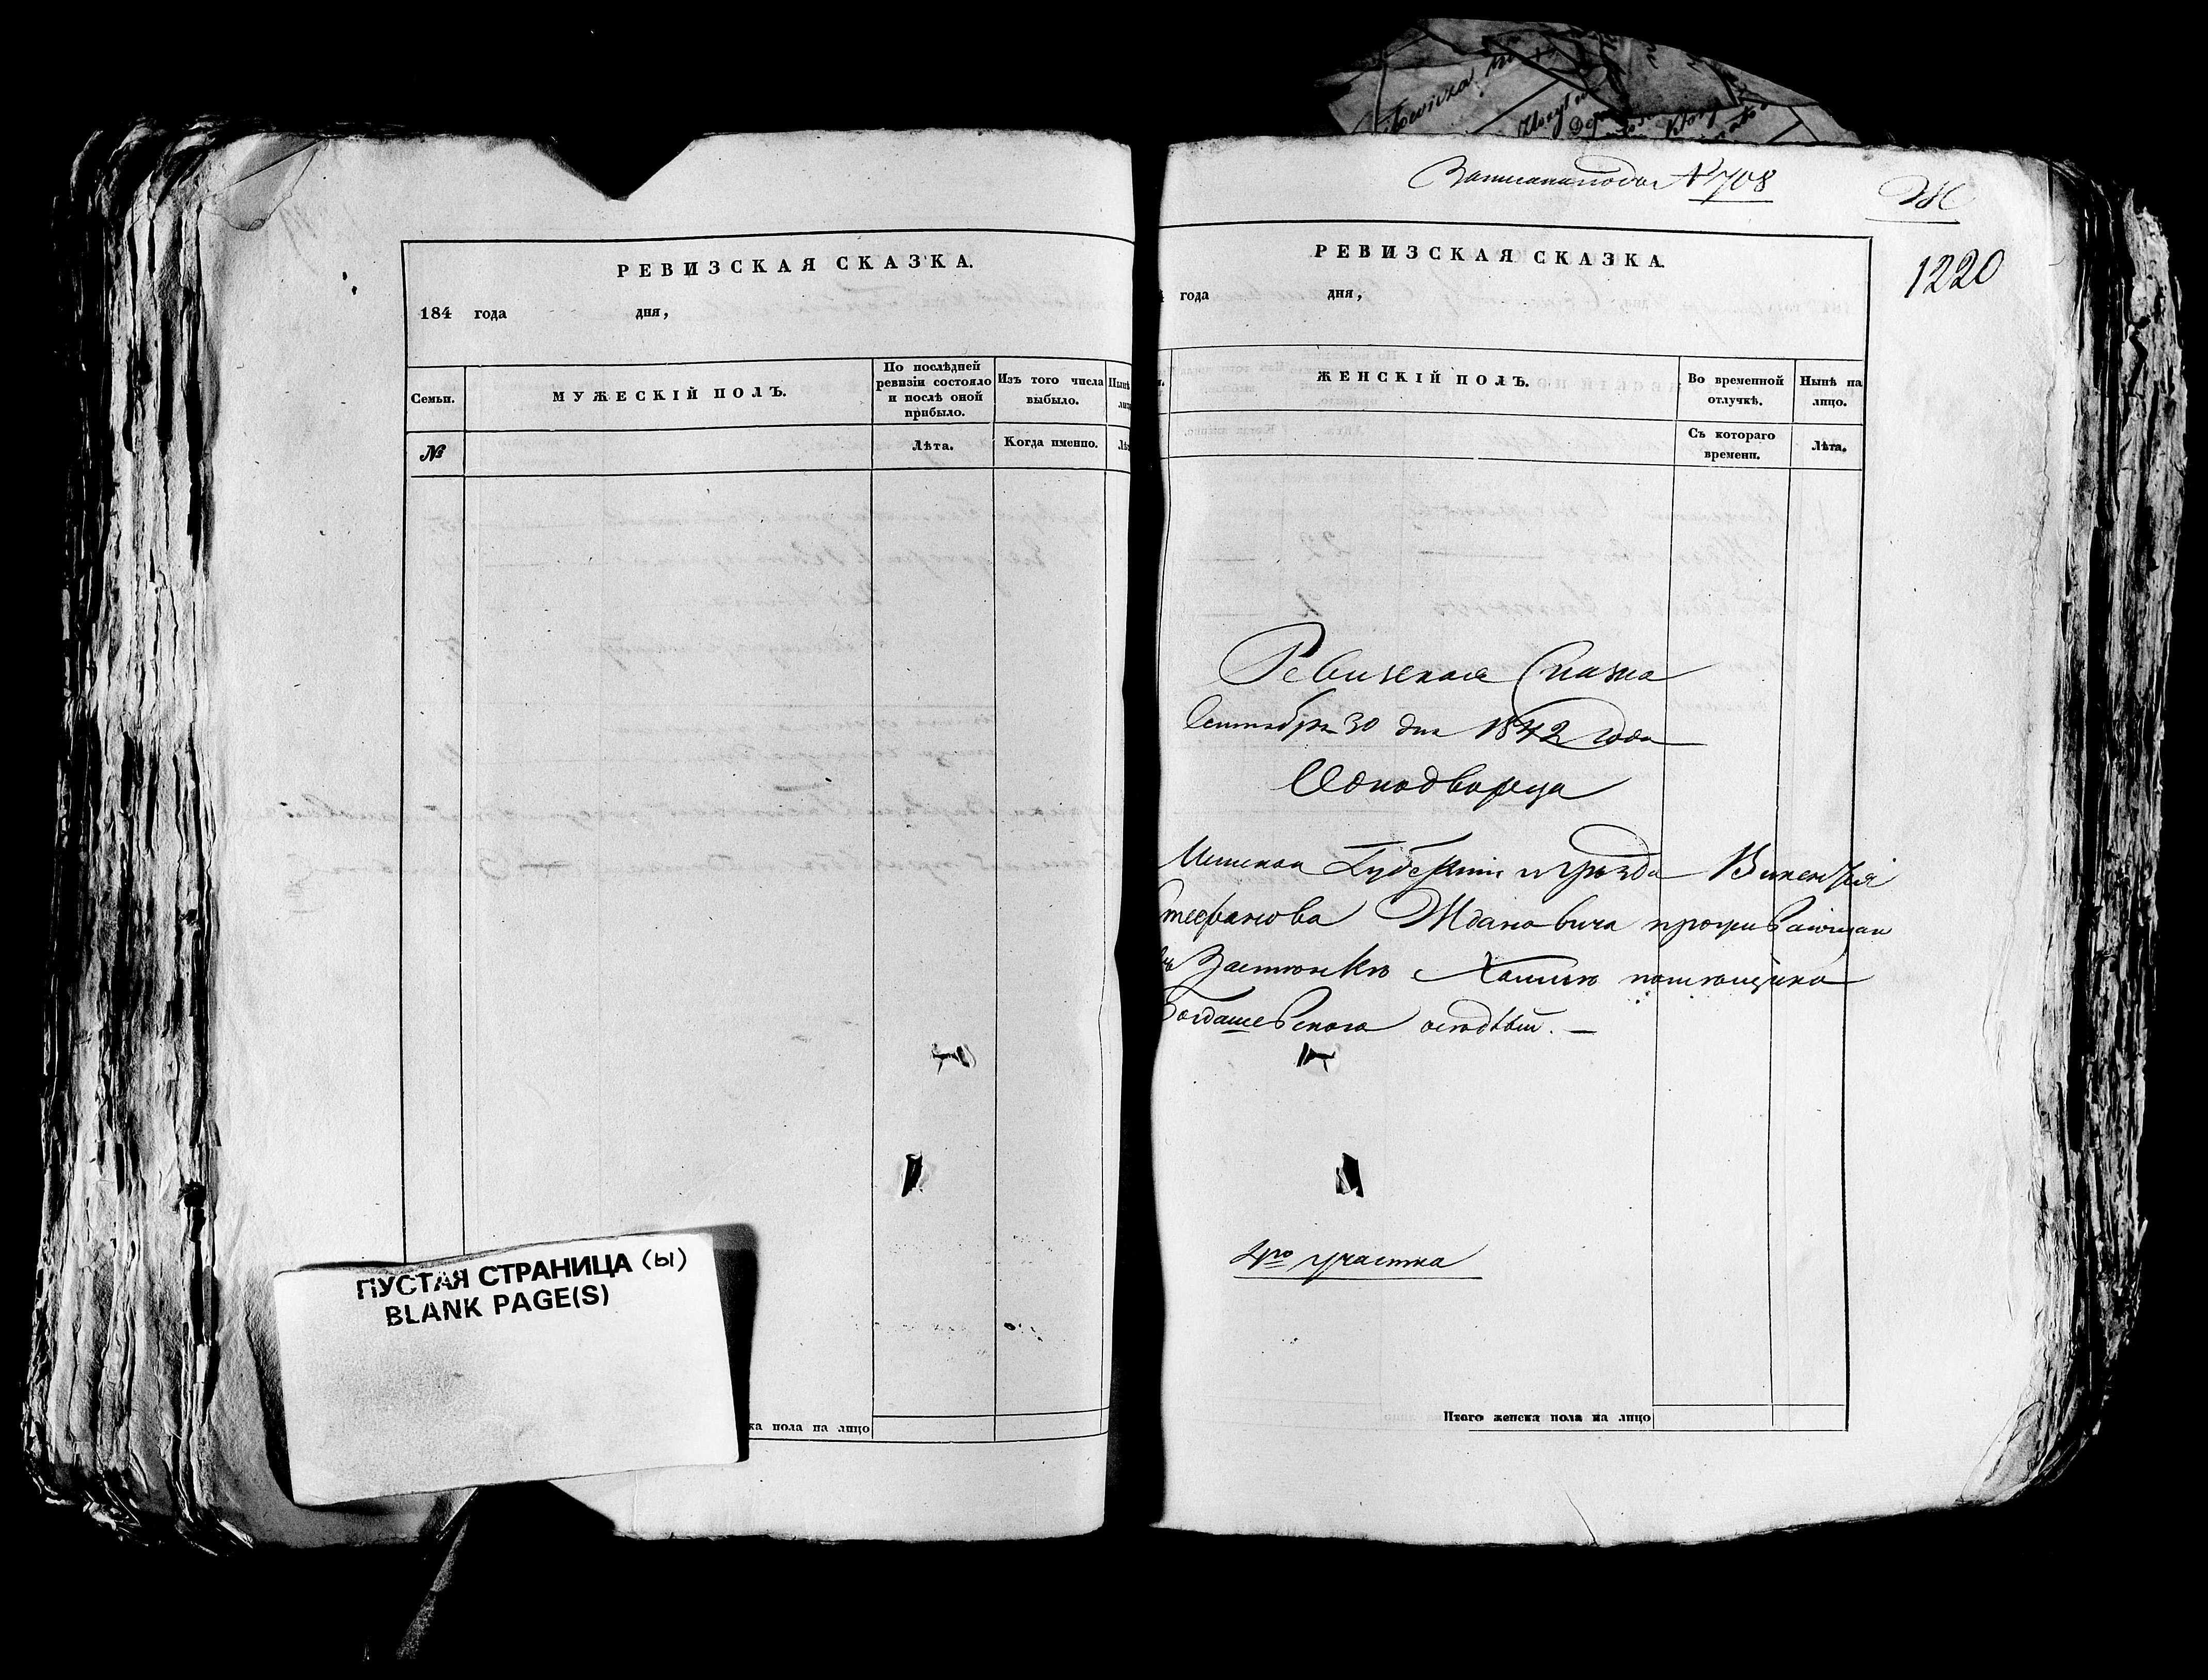 РЕВИЗСКАЯ СКАЗКА.
184 года дня,
Семьи.
МУЖЕСКІЙ ПОЛЪ.
По послѣдней ревизіи состояло и послѣ оной прибыло.
Изъ того числа выбыло.
№
Лѣта.
Когда именно.
ПУСТАЯ СТРАНИЦА (ы)
BLANK PAGE(S)
ка пола на лицо
Записана подъ №708
Ж
1220
РЕВИЗСКАЯ СКАЗКА.
года дня,
ЖЕНСКІЙ ПОЛЪ.
Во временной отлучкѣ.
Нынѣ на лицо.
Съ котораго времени.
Лѣта.
Ревизская Сказка
Сентября 30 дня 1842 года
Однодворца
Минской Губерніи и уѣзда Викентія
тефанова Ждановича проживающаи
въ Застѣнкѣ помѣщика
Богдашевскаго осѣдлый. —
4го участка
Итого женска пола на лицо